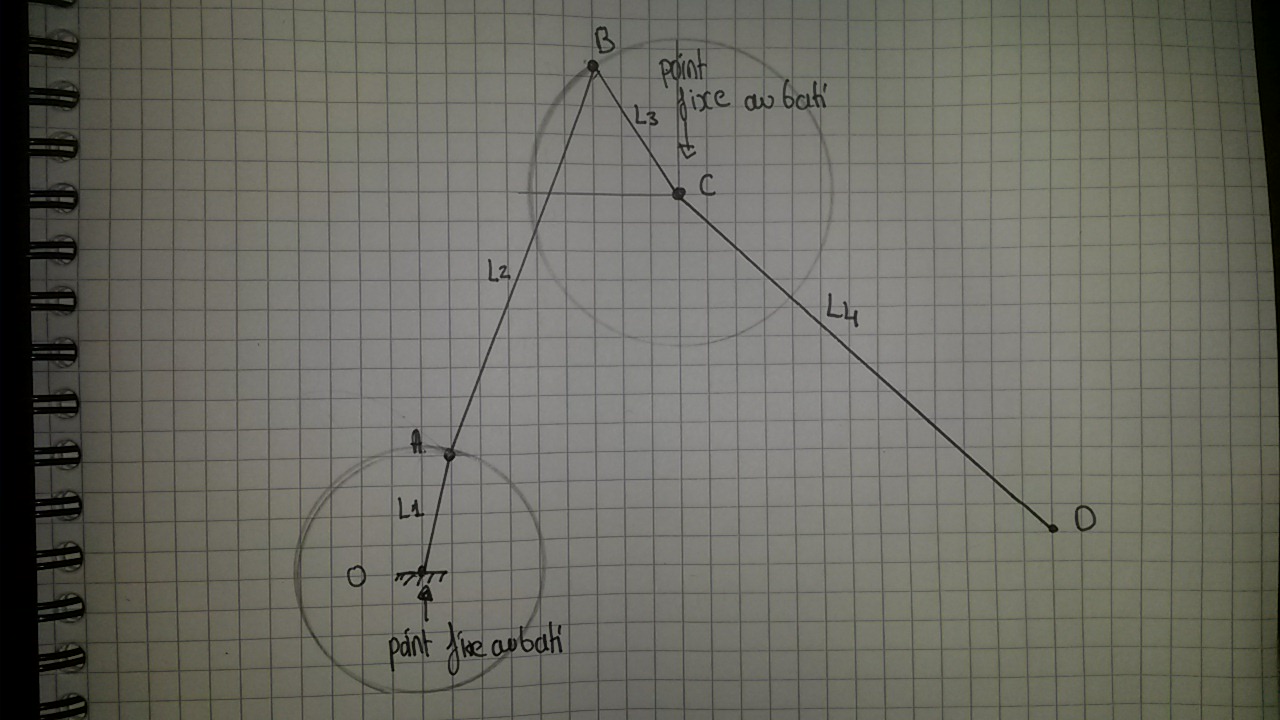 B
point
fixe au bati
L3
C
L2
L4
A
L1
D
O
point fixe au bati